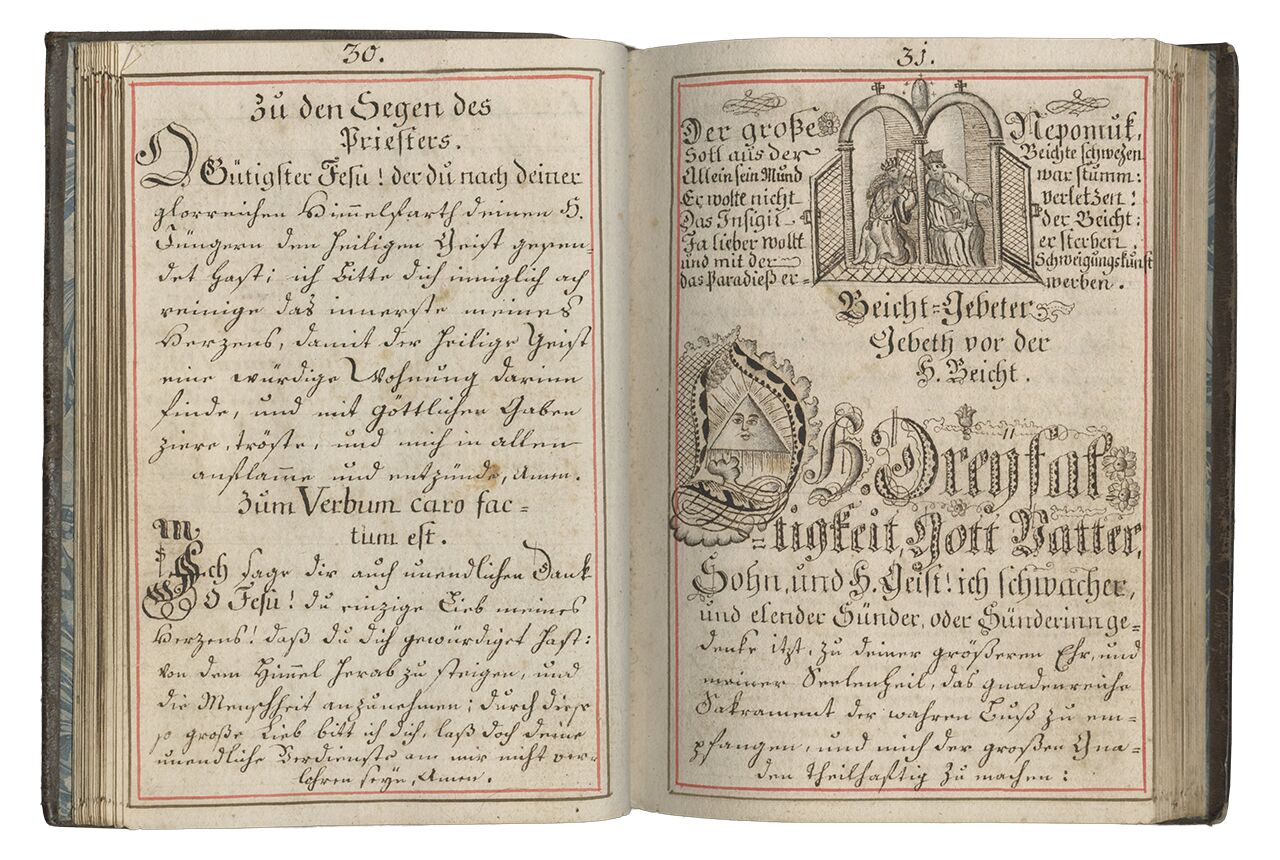 30.
Zu den Segen des
Priesters.
O Gütigster Jesu! der du nach deiner
glorreichen Himmelfarth deinen H.
Jüngern den Heiligen Geist gesen-
det hast; ich bitte dich inniglich ach
reinige das innerste meines
Herzens, damit der Heilige Geist
eine würdige Wohnung darinn
finde, und mit göttlichen Gaben
ziere, tröste, und mich in allen
anflam̄e und entzünde, Amen.
Zum Verbum caro fac=
tum est.
Ich sage dir auch unendlichen Dank
O Jesu! du einzige Lieb meines
Herzens! daß du dich gewürdiget hast:
von dem Himmel herab zu steigen, und
die Menschheit anzunehmen; durch diese
so große Lieb bitt ich dich, laß doch deine
unendliche Verdienste an mir nicht ver=
lohren seyn, Amen.
31.
Der große Nepomuk,
Soll aus der Beichte schwezen
Allein sein Mund war stumm:
Er wolte nicht verletzen!
Das Insigil der Beicht:
Ja lieber wollt er sterben,
und mit der Schweigungskunst
das Paradieß er= werben.
Beicht=Gebeter
Gebeth vor der
H. Beicht.
O H. Dreyfal
=tigkeit, Gott Vatter,
Sohn, und H. Geist! ich schwacher,
und elender Sünder, oder Sünderinn ge=
denke itzt, zu deiner größeren Ehr, und
meiner Seelenheil, das gnadenreiche
Sakrament der wahren Buß zu em=
pfangen, und mich der großen Gna=
den theilhaftig zu machen: